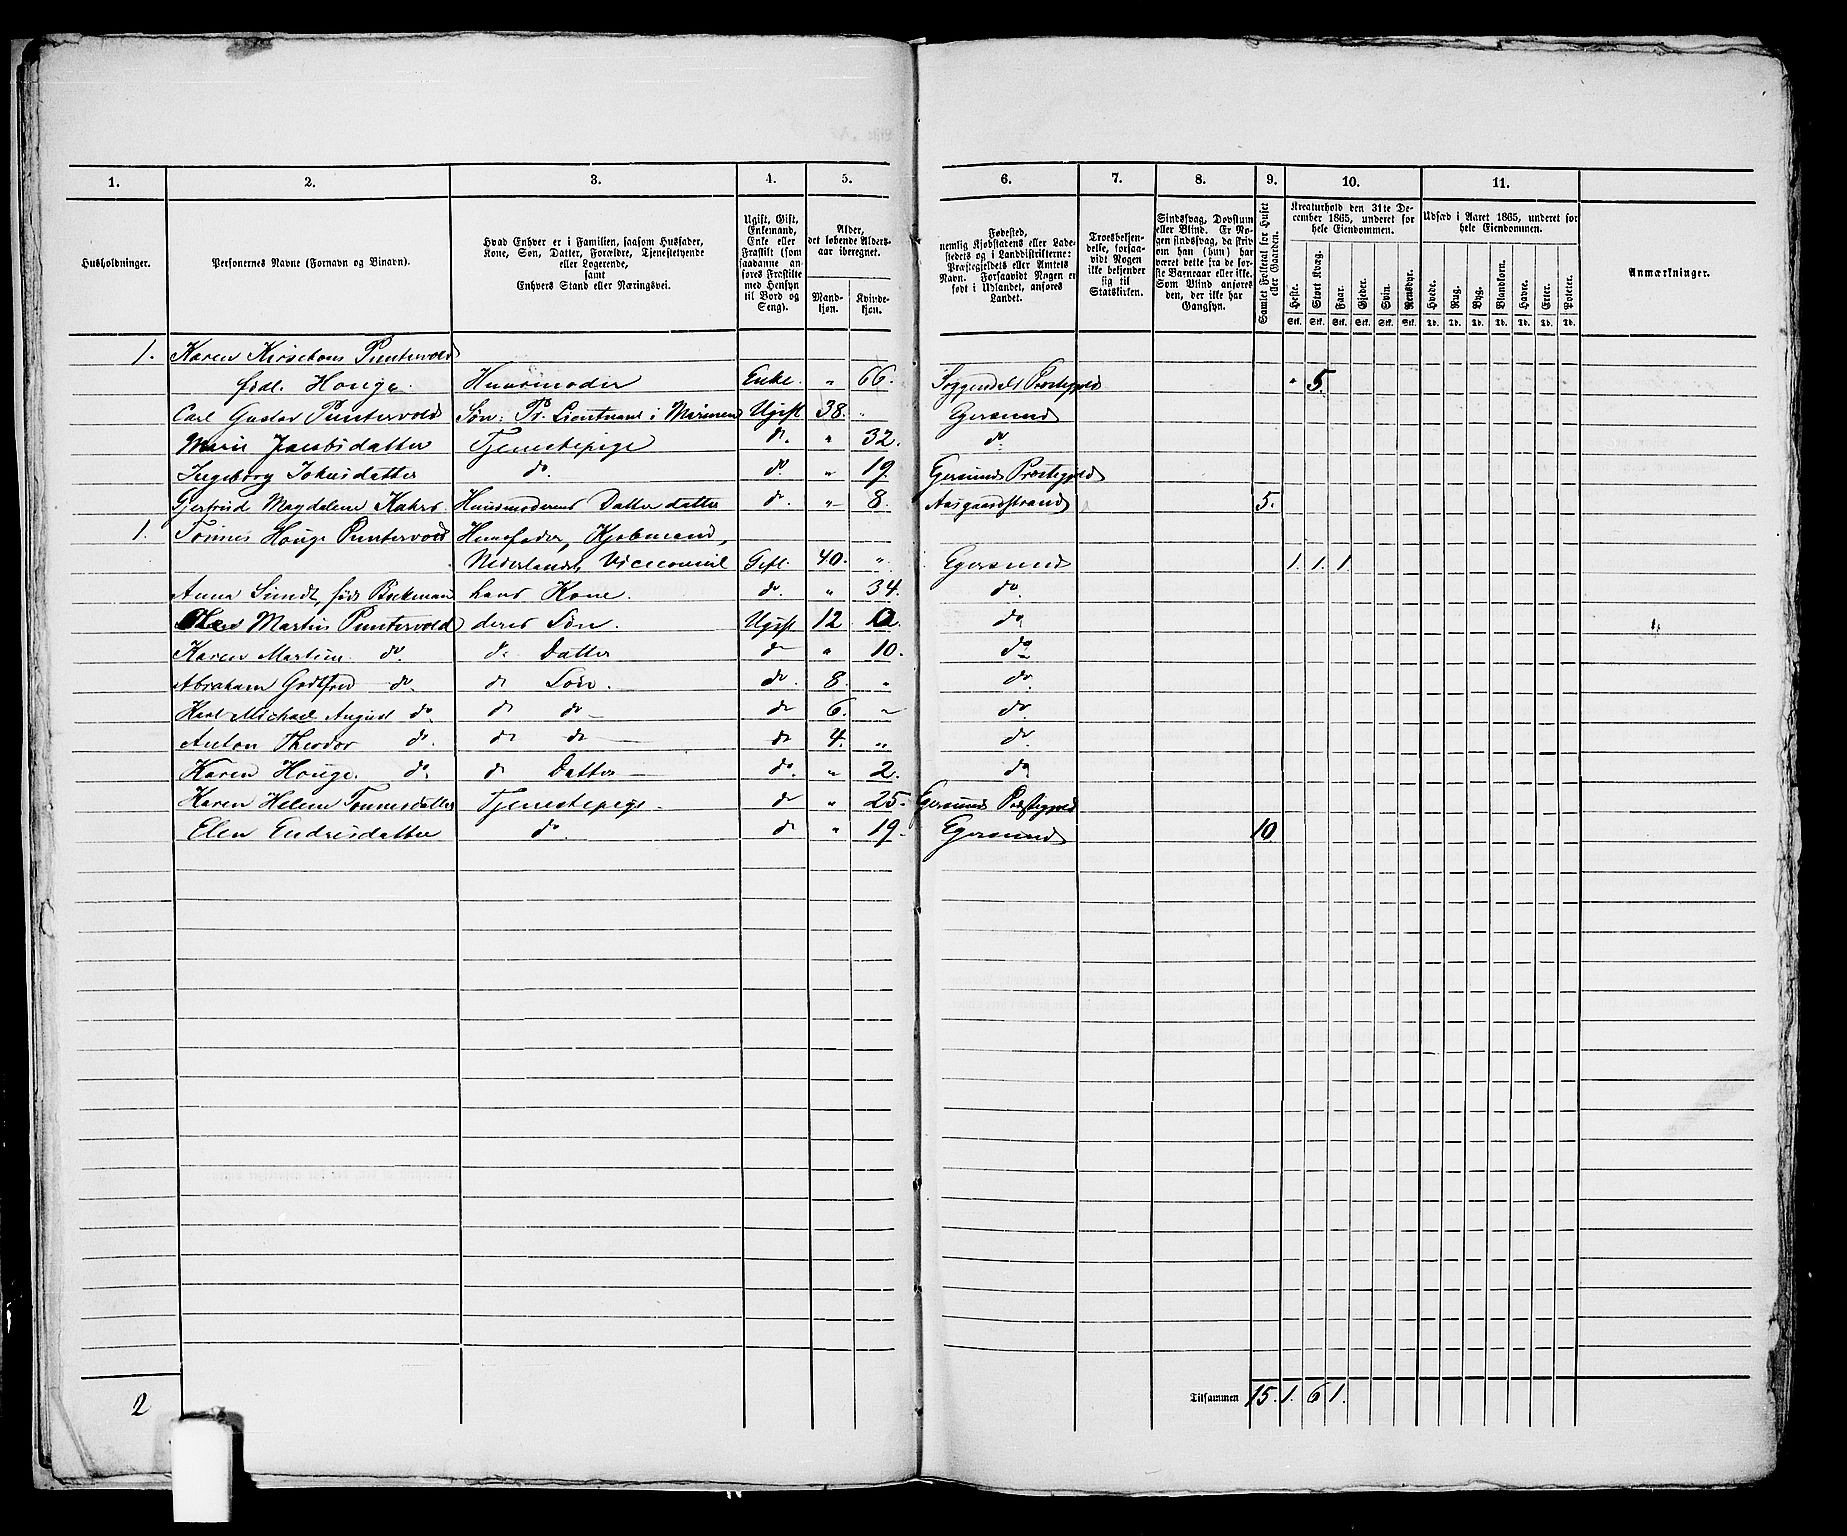 1. 2. 3. 4. 5. 6. 7. 8. 9. 10. 11.
Husholdninger.
Personernes Navne (Fornavn og Binavn).
Hvad Enhver er i Familien, saasom Husfader,
Kone, Søn, Datter, Forældre, Tjenestetyende
eller Logerende,
samt
Enhvers Stand eller Næringsvei.
Ugift, Gift,
Enkemand,
Enke eller
Fraskilt (som
saadanne an-
føres Fraskilte
med Hensyn
til Bord og
Seng).
Alder,
det løbende Alders-
aar iberegnet.
Mand-
kjøn.
Kvinde-
kjøn.
Fødested,
nemlig Kjøbstadens eller Lade-
stedets og i Landdistrikterne:
Præstegjeldets eller Amtets
Navn. Forsaavidt Nogen er
født i Udlandet, anføres
Landet.
Troesbekjen-
delse, forsaa-
vidt Nogen
ikke bekjender
sig til
Statskirken.
Sindssvag, Døvstum
eller Blind. Er No-
gen sindssvag, da skriv
om han (hun) har
været dette fra de før-
ste Barneaar eller ikke.
Som Blind anføres
den, der ikke har
Gangsyn.
Samlet Folketal for Huset
eller Gaarden.
Kreaturhold den 31te De-
cember 1865, underet for
hele Eiendommen.
Heste. Stort Kvæg. Faar. Gjeder. Svin. Rensdyr.
Stk. Stk. Stk. Stk. Stk. Stk.
Udsæd i Aaret 1865, underet for
hele Eiendommen.
Hvede. Rug. Byg. Blandkorn. Havre. Erter. Poteter.
Td. Td. Td. Td. Td. Td. Td.
Anmærkninger.
1. Karen Kirsebom Puntervold
født Houge. Huusmoder Enke. " 66. Soggendals Præstegjeld " 5.
Carl Gustav Puntervold Søn: Pr. Lieutnant i Marinen Ugift 38. " Egersund
Marie Jacobsdatter Tjenestepige do. " 32. do.
Ingeborg Johnsdatter do. do. " 19. Egersund Præstegjeld
Gjertrud Magdalene Kahrs. Huusmoderens Datterdatter do. " 8. Aasgaardstrand 5.
1. Tønnes Houge Puntervold Huusfader, Kjøbmand,
Nederlandsk Viceconsul Gift. 40. " Egersund 1. 1. 1
Anna Sundt, født Beckman hans Kone. do. " 34. do.
Martius Puntervold deres Søn. Ugift 12 do
Karen Martine do. do. Datter do " 10. do
Abraham Godtfred do. do Søn. do. 8. " do.
Karl Michael August do. do do do 6. " do.
Anton Theodor do. do do do 4. " do.
Karen Houge. do. do Datter do. " 2. do
Karen Helene Tønnesdatter Tjenestepige. do " 25. Egersunds Præstegjeld
Elen Endresdatter do. do " 19. Egersund 10.
2
Tilsammen 15. 1. 6 1.